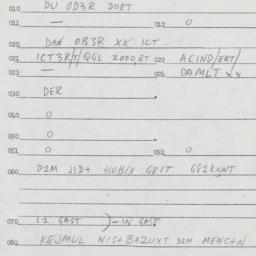 010 DU OD3R DORT
011 — 012 O
020 DAN OB3R XX ICT
021 ICT3R/T/QGL ZOFO,RT 022 ACIND/ERT/
023 — 024 DAMLT XX
030 DER
040 O
050 O
051 O 052 O
060 D1M JID+ HOBIX GBIT GE1KONT
070 L1 GAST )-IN GAST
080 KEJMUL NIS+BAZUXT D1M MENC+N